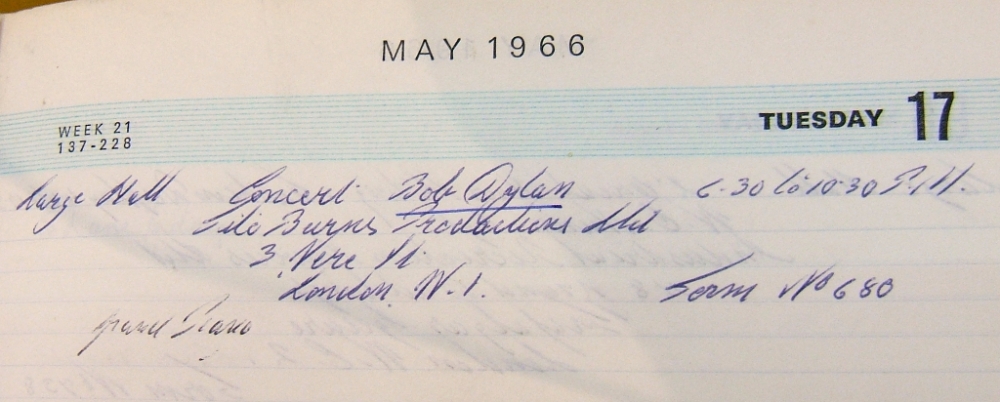 MAY 1966
WEEK 21
137-228
TUESDAY 17
Large Hall Concert Bob Dylan 6.30 to 10.30 P.M.
Tito Burns Productions Ltd
3 Vere St.
London, W.1. Form No 680
Grand Piano